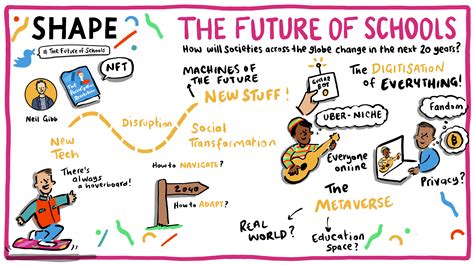 SHAPE
# The Future of Schools
THE FUTURE OF SCHOOLS
How will Societies across the globe change in the next 20 years?
Neil Gibb
The Participation Revolution
NFT
MACHINES OF
THE FUTURE
NEW STUFF!
GUITAR
BOT
The DIGITISATION
of EVERYTHING!
New
Tech
Disruption
Social
Transformation
UBER-NICHE
Fandom
Everyone
online
Privacy?
There's
always
a hoverboard!
How to NAVIGATE?
2040
How to ADAPT?
The
METAVERSE
REAL
WORLD?
Education
space?